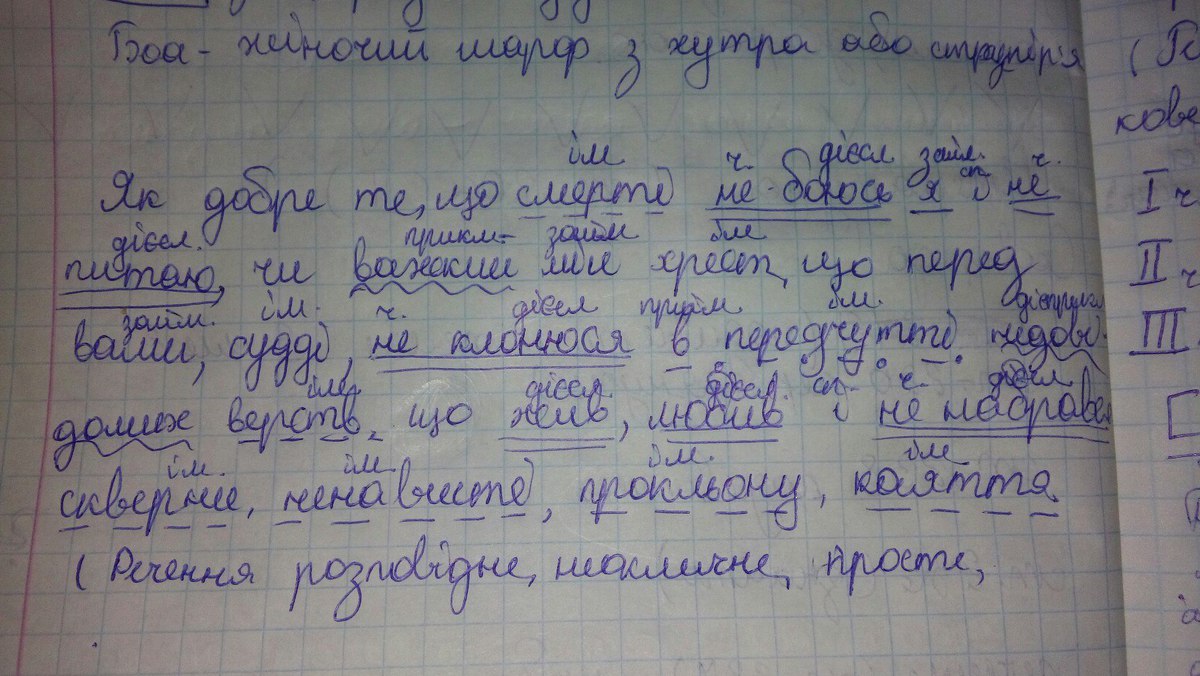 Боа - жіночий шарф з хутра або страуспір'я
ім ч. дієсл займ. сп ч.
Як добре те, що смерті не боюсь я і не
дієсл. прикм. займ ім
питаю, чи важкий мій хрест, що перед
займ. ім. ч. дієсл прийм. ім. дієприкм
вами, судді, не клонюся в передчутті недові-
ім. дієсл. дієсл. сп. ч. дієсл.
домих верств, що жив, любив і не набрався
ім. ім. ім. ім
скверни, ненависті, прокльону, каяття
(Речення розповідне, неокличне, просте,
кове
I ч
II ч
III